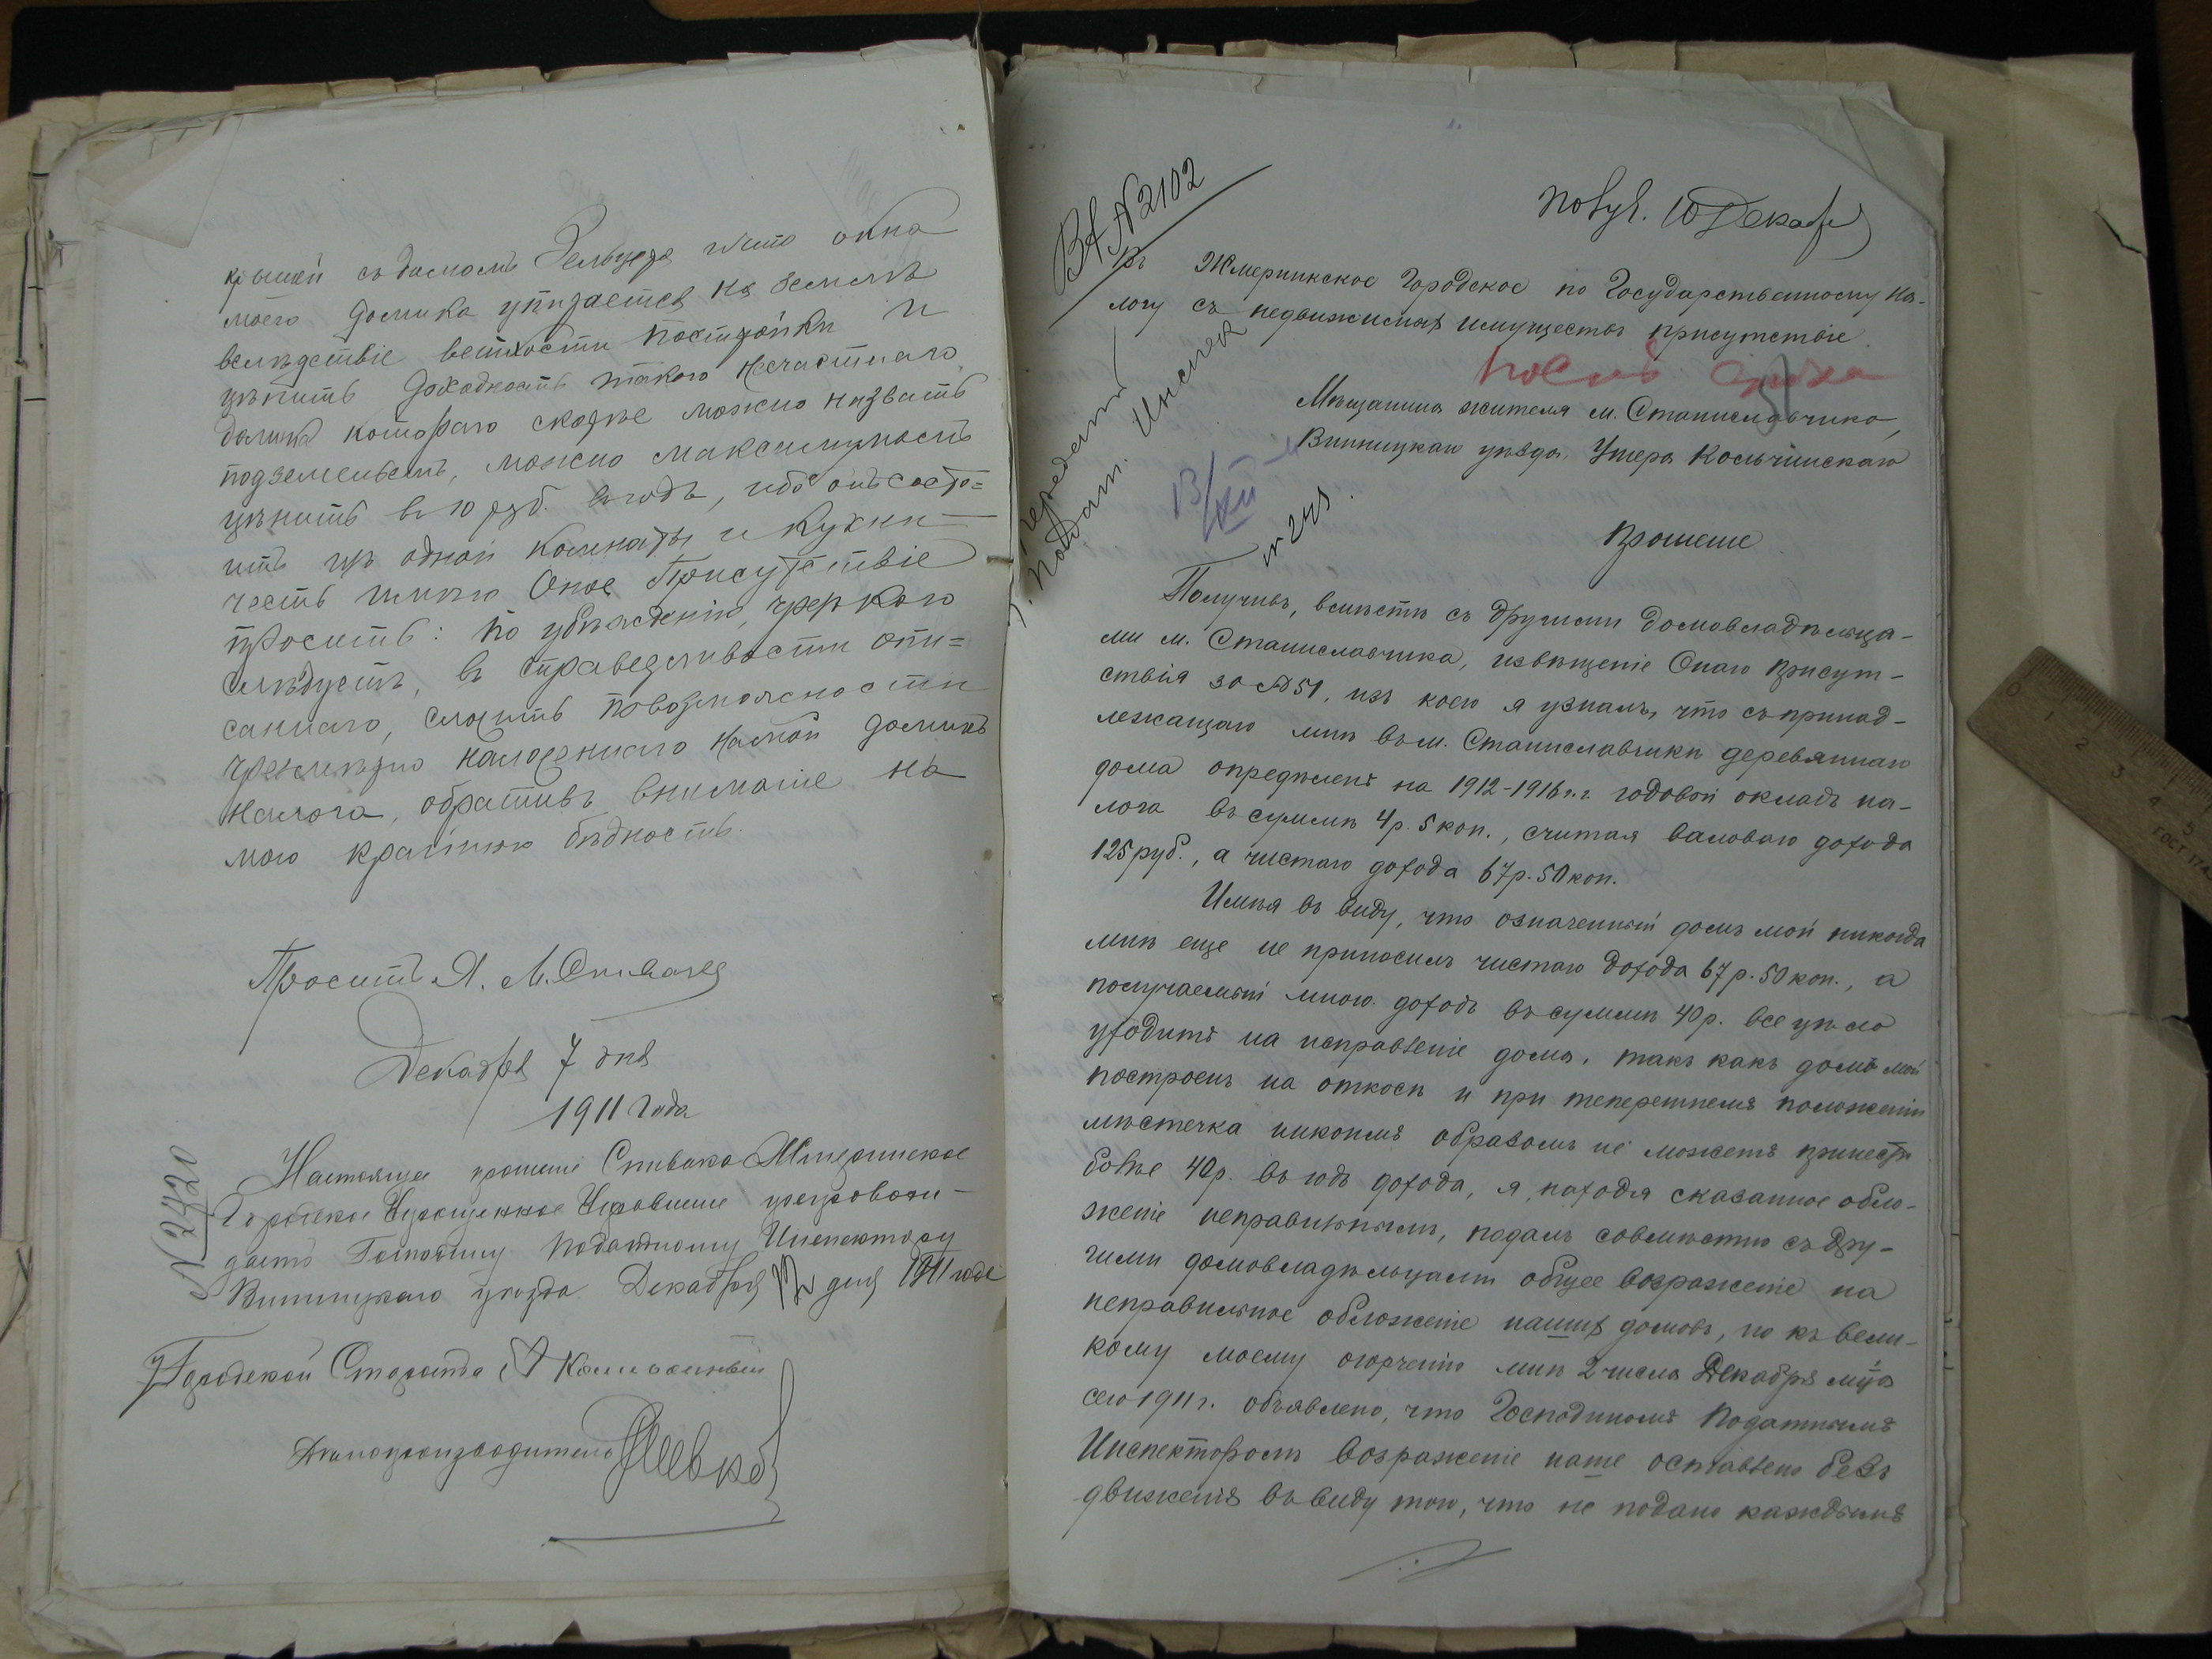 крышей съ домомъ что окна
моего домика упирается на землю
вслѣдствіе ветхости постройки и
цѣнить доходность такого несчастнаго
домика котораго скорѣе можно назвать
подземельемъ, можно максимумъ
цѣнить въ 10 руб. въ годъ, ибо онъ состо=
итъ изъ одной комнаты и кухни
честь имѣю Оное Присутствіе
просить: по убѣжденію,
слѣдуетъ, въ справедливости опи=
саннаго, сложить по возможности
чрезмѣрно наложеннаго на мой домикъ
налога, обративъ вниманіе на
мою крайнюю бѣдность.
Проситъ Я. М. Спивакъ
Декабря 7 дня
1911 года
N 2420
Настоящее прошеніе Спивака Жмеринское
Городское Упрощенное Управленіе препровож-
даетъ Господину Податному Инспектору
Винницкаго уѣзда Декабря 12 дня 1911 года
Городской Староста
Дѣлопроизводитель
Вх. N 2102
Получ. 10 Декабр
Въ Жмеринкское Городское по Государственному на-
логу съ недвижимыхъ имуществъ присутствіе.
послѣ срока
Мѣщанина жителя м. Станиславчика,
Винницкаго уѣзда, Умера Кольчинскаго
13/XII
N 248.
Прошеніе
Получивъ, вмѣстѣ съ другими домовладѣльца-
ми м. Станиславчика, извѣщеніе Онаго Присут-
ствія за № 51, изъ коего я узналъ, что съ принад-
лежащаго мнѣ въ м. Станиславчикѣ деревяннаго
дома опредѣленъ на 1912-1916 г.г. годовой окладъ на-
лога въ суммѣ 4 р. 5 коп., считая валоваго дохода
125 руб., а чистаго дохода 67 р. 50 коп.
Имѣя въ виду, что означенный домъ мой никогда
мнѣ еще не приносилъ чистаго дохода 67 р. 50 коп., а
получаемый мною доходъ въ суммѣ 40 р. все цѣло
уходитъ на исправленіе дома, такъ какъ домъ мой
построенъ на откосѣ и при теперешнемъ положеніи
мѣстечка никоимъ образомъ не можетъ принести
болѣе 40 р. въ годъ дохода, я, находя сказанное обло-
женіе неправильнымъ, подалъ совмѣстно съ дру-
гими домовладѣльцами общее возраженіе на
неправильное обложеніе нашихъ домовъ, но къ вели-
кому моему огорченію мнѣ 2 числа Декабря м-ца
сего 1911 г. объявлено, что Господиномъ Податнымъ
Инспекторомъ возраженіе наше оставлено безъ
движенія въ виду того, что не подано каждымъ